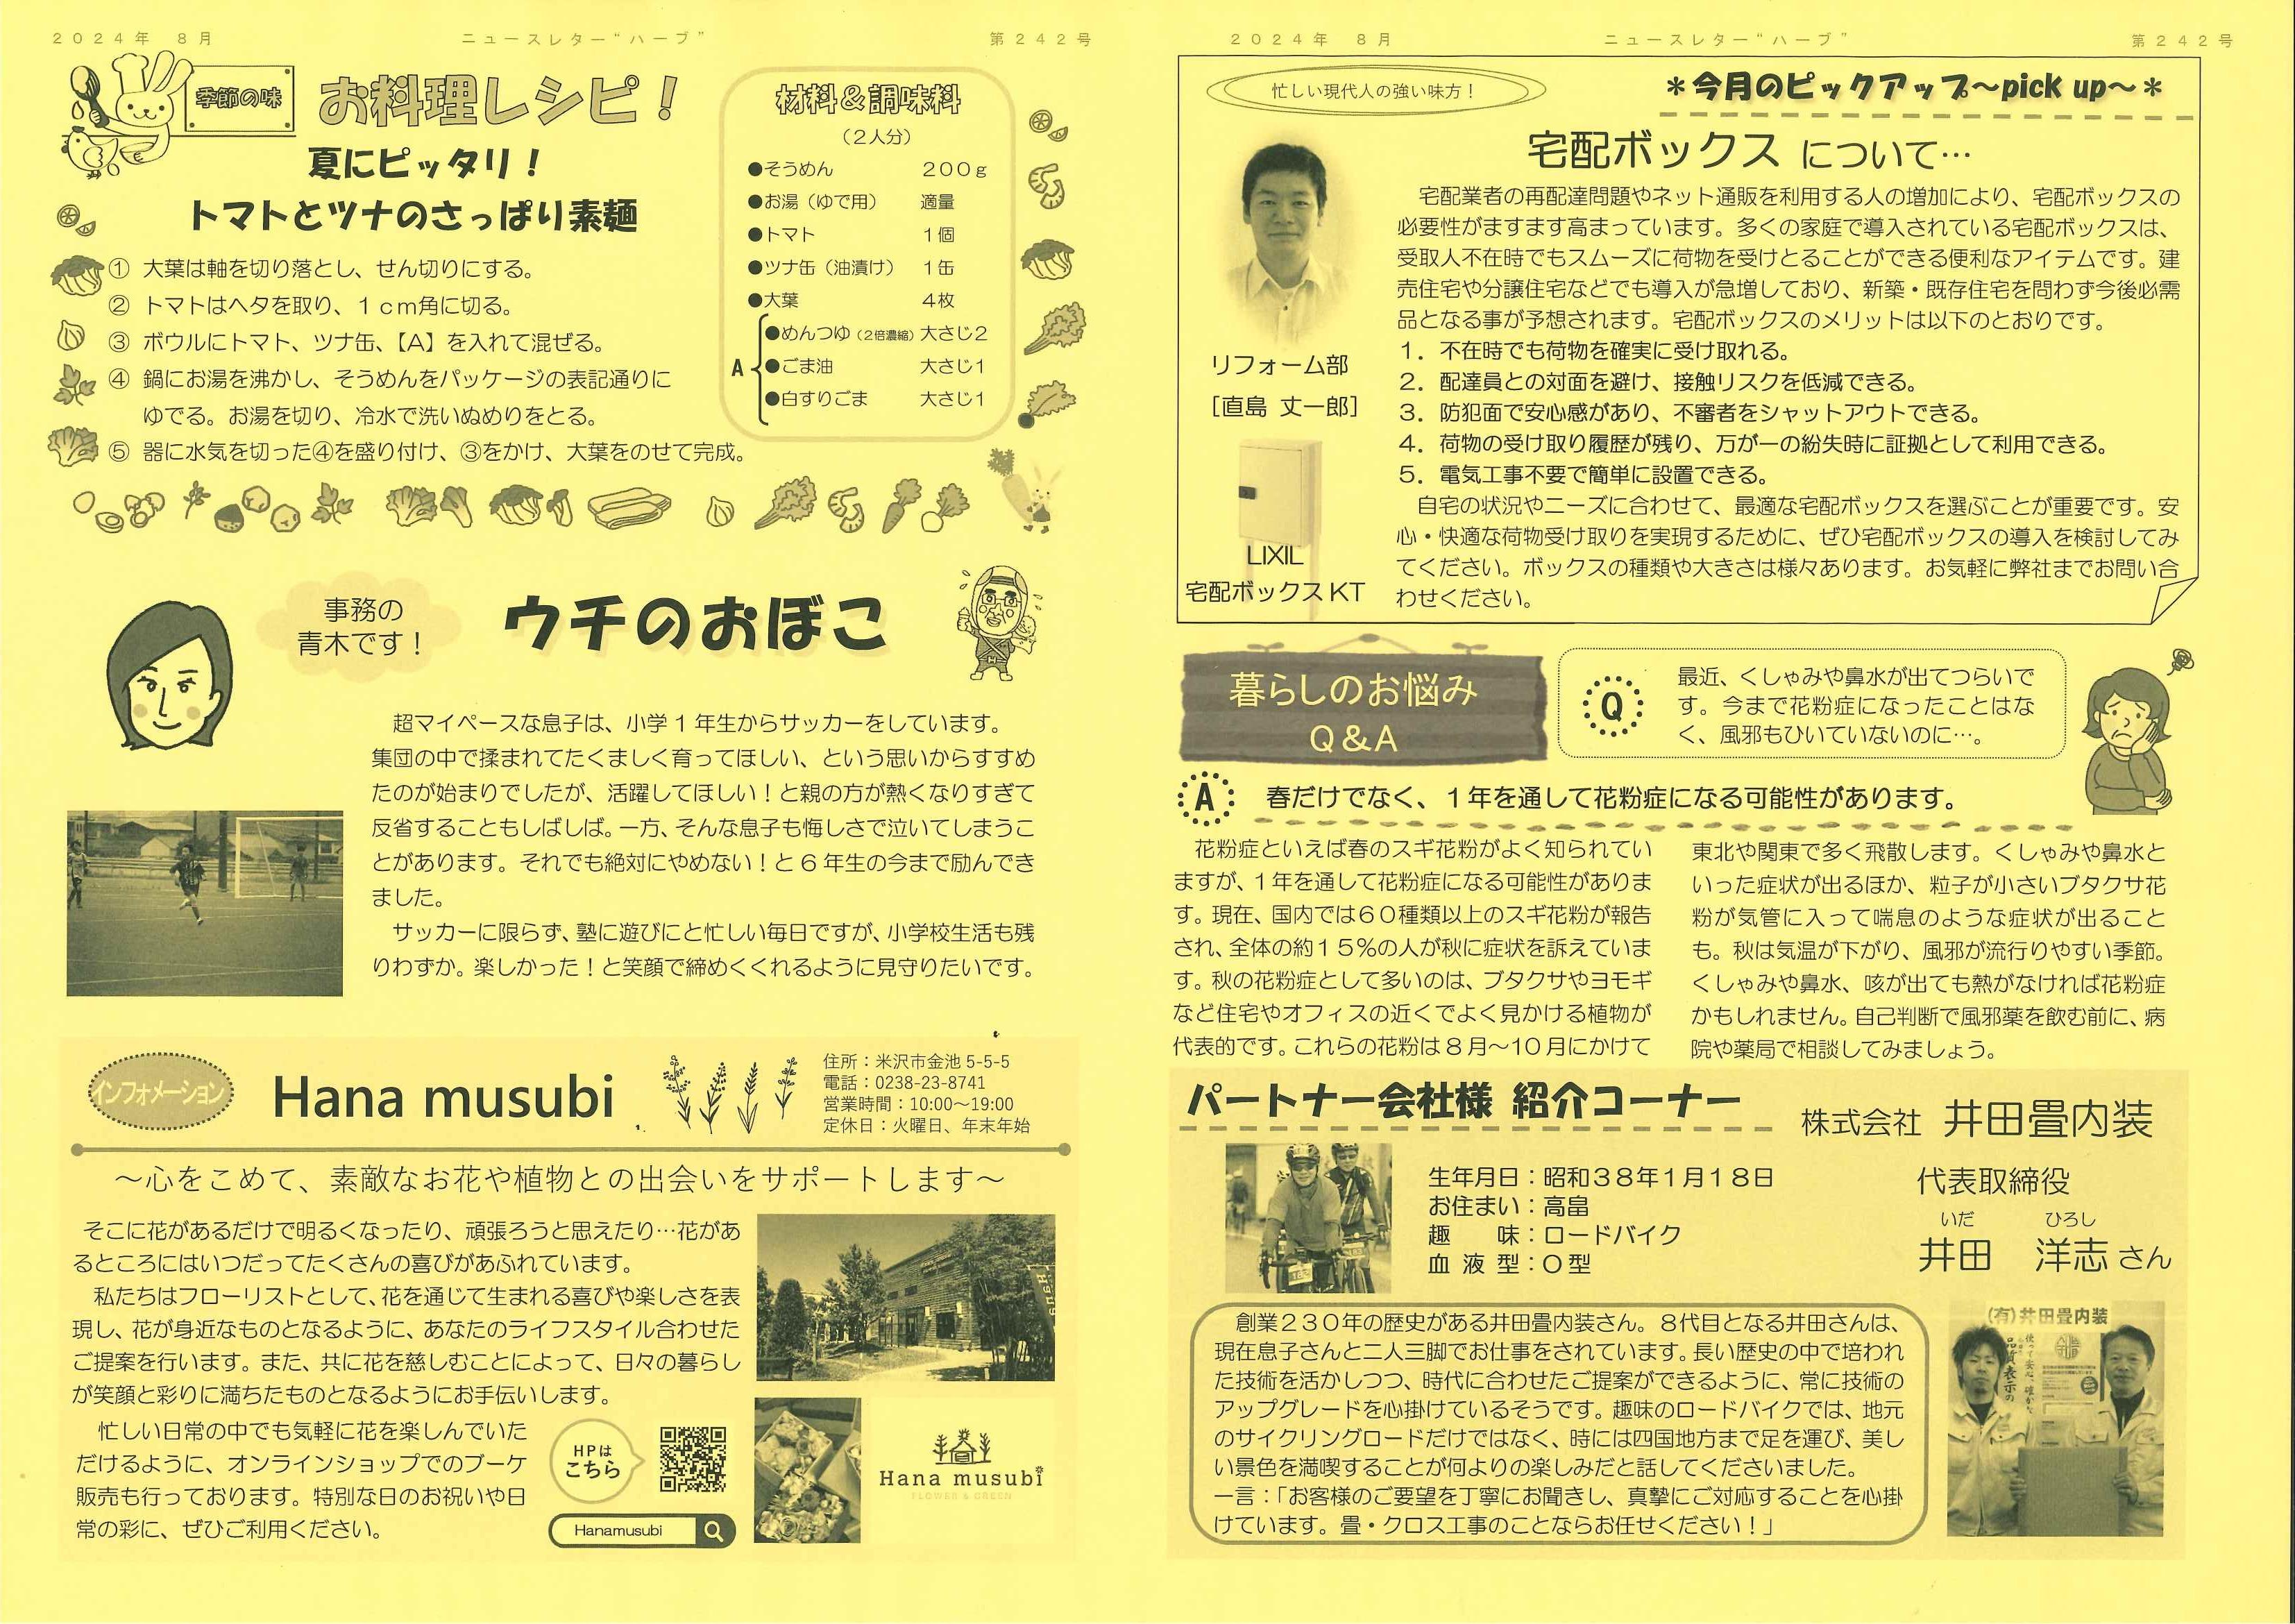 2024年 8月
ニュースレター“ハーブ”
第242号
季節の味
お料理レシピ！
夏にピッタリ！
トマトとツナのさっぱり素麺
① 大葉は軸を切り落とし、せん切りにする。
② トマトはヘタを取り、1cm角に切る。
③ ボウルにトマト、ツナ缶、【A】を入れて混ぜる。
④ 鍋にお湯を沸かし、そうめんをパッケージの表記通りに
ゆでる。お湯を切り、冷水で洗いぬめりをとる。
⑤ 器に水気を切った④を盛り付け、③をかけ、大葉をのせて完成。
材料＆調味料
（2人分）
●そうめん 200g
●お湯（ゆで用） 適量
●トマト 1個
●ツナ缶（油漬け） 1缶
●大葉 4枚
A
●めんつゆ（2倍濃縮）大さじ2
●ごま油 大さじ1
●白すりごま 大さじ1
事務の
青木です！
ウチのおぼこ
超マイペースな息子は、小学1年生からサッカーをしています。
集団の中で揉まれてたくましく育ってほしい、という思いからすすめ
たのが始まりでしたが、活躍してほしい！と親の方が熱くなりすぎて
反省することもしばしば。一方、そんな息子も悔しさで泣いてしまうこ
とがあります。それでも絶対にやめない！と6年生の今まで励んでき
ました。
サッカーに限らず、塾に遊びにと忙しい毎日ですが、小学校生活も残
りわずか。楽しかった！と笑顔で締めくくれるように見守りたいです。
インフォメーション
Hana musubi
住所：米沢市金池 5-5-5
電話：0238-23-8741
営業時間：10:00～19:00
定休日：火曜日、年末年始
～心をこめて、素敵なお花や植物との出会いをサポートします～
そこに花があるだけで明るくなったり、頑張ろうと思えたり…花があ
るところにはいつだってたくさんの喜びがあふれています。
私たちはフローリストとして、花を通じて生まれる喜びや楽しさを表
現し、花が身近なものとなるように、あなたのライフスタイル合わせた
ご提案を行います。また、共に花を慈しむことによって、日々の暮らし
が笑顔と彩りに満ちたものとなるようにお手伝いします。
忙しい日常の中でも気軽に花を楽しんでいた
だけるように、オンラインショップでのブーケ
販売も行っております。特別な日のお祝いや日
常の彩に、ぜひご利用ください。
HPは
こちら
Hanamusubi
Hana musubi
FLOWER & GREEN
2024年 8月
ニュースレター“ハーブ”
第242号
忙しい現代人の強い味方！
＊今月のピックアップ～pick up～＊
宅配ボックス について…
宅配業者の再配達問題やネット通販を利用する人の増加により、宅配ボックスの
必要性がますます高まっています。多くの家庭で導入されている宅配ボックスは、
受取人不在時でもスムーズに荷物を受けとることができる便利なアイテムです。建
売住宅や分譲住宅などでも導入が急増しており、新築・既存住宅を問わず今後必需
品となる事が予想されます。宅配ボックスのメリットは以下のとおりです。
1．不在時でも荷物を確実に受け取れる。
2．配達員との対面を避け、接触リスクを低減できる。
3．防犯面で安心感があり、不審者をシャットアウトできる。
4．荷物の受け取り履歴が残り、万が一の紛失時に証拠として利用できる。
5．電気工事不要で簡単に設置できる。
自宅の状況やニーズに合わせて、最適な宅配ボックスを選ぶことが重要です。安
心・快適な荷物受け取りを実現するために、ぜひ宅配ボックスの導入を検討してみ
てください。ボックスの種類や大きさは様々あります。お気軽に弊社までお問い合
わせください。
リフォーム部
［直島 丈一郎］
LIXIL
宅配ボックスKT
暮らしのお悩み
Q＆A
Q
最近、くしゃみや鼻水が出てつらいで
す。今まで花粉症になったことはな
く、風邪もひいていないのに…。
A
春だけでなく、1年を通して花粉症になる可能性があります。
花粉症といえば春のスギ花粉がよく知られてい
ますが、1年を通して花粉症になる可能性がありま
す。現在、国内では60種類以上のスギ花粉が報告
され、全体の約15％の人が秋に症状を訴えていま
す。秋の花粉症として多いのは、ブタクサやヨモギ
など住宅やオフィスの近くでよく見かける植物が
代表的です。これらの花粉は8月～10月にかけて
東北や関東で多く飛散します。くしゃみや鼻水と
いった症状が出るほか、粒子が小さいブタクサ花
粉が気管に入って喘息のような症状が出ること
も。秋は気温が下がり、風邪が流行りやすい季節。
くしゃみや鼻水、咳が出ても熱がなければ花粉症
かもしれません。自己判断で風邪薬を飲む前に、病
院や薬局で相談してみましょう。
パートナー会社様 紹介コーナー
株式会社 井田畳内装
生年月日：昭和38年1月18日
お住まい：高畠
趣 味：ロードバイク
血 液 型：O型
代表取締役
いだ ひろし
井田 洋志さん
創業230年の歴史がある井田畳内装さん。8代目となる井田さんは、
現在息子さんと二人三脚でお仕事をされています。長い歴史の中で培われ
た技術を活かしつつ、時代に合わせたご提案ができるように、常に技術の
アップグレードを心掛けているそうです。趣味のロードバイクでは、地元
のサイクリングロードだけではなく、時には四国地方まで足を運び、美し
い景色を満喫することが何よりの楽しみだと話してくださいました。
一言：「お客様のご要望を丁寧にお聞きし、真摯にご対応することを心掛
けています。畳・クロス工事のことならお任せください！」
(有)井田畳内装
品質表示の